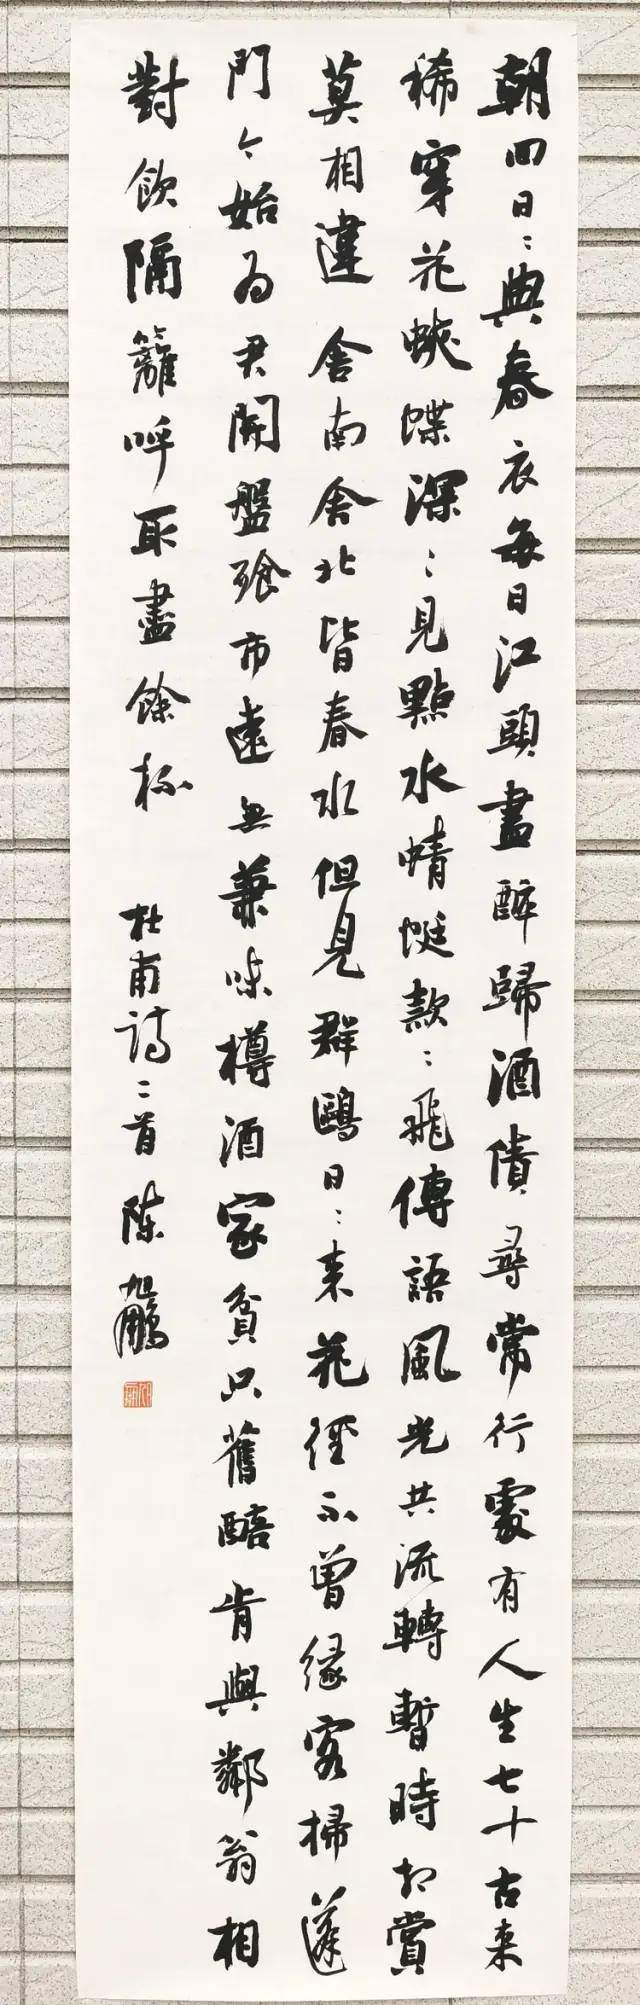 朝回日〻典春衣每日江頭盡醉歸酒債尋常行處有人生七十古來
稀穿花蛺蝶深〻見點水蜻蜓款〻飛傳語風光共流轉暫時相賞
莫相違舍南舍北皆春水但見群鷗日〻來花徑不曾緣客掃蓬
門今始為君開盤飱市遠無兼味樽酒家貧只舊醅肯與鄰翁相
對飲隔籬呼取盡餘杯
杜甫詩二首陳旭鵬